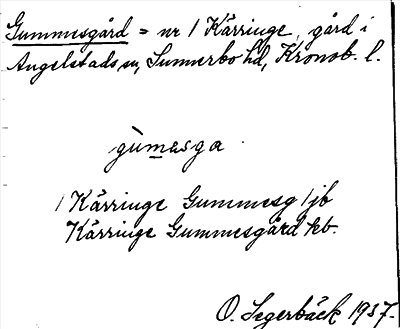 Gummesgård = nr 1 Kärringe, gård i
Angelstads sn, Sunnerbo hd, Kronob. l.
gùmesga
1 Kärringe Gummesg 1 jb
Kärringe Gummesgård kb.
O. Segerbäck 1937.